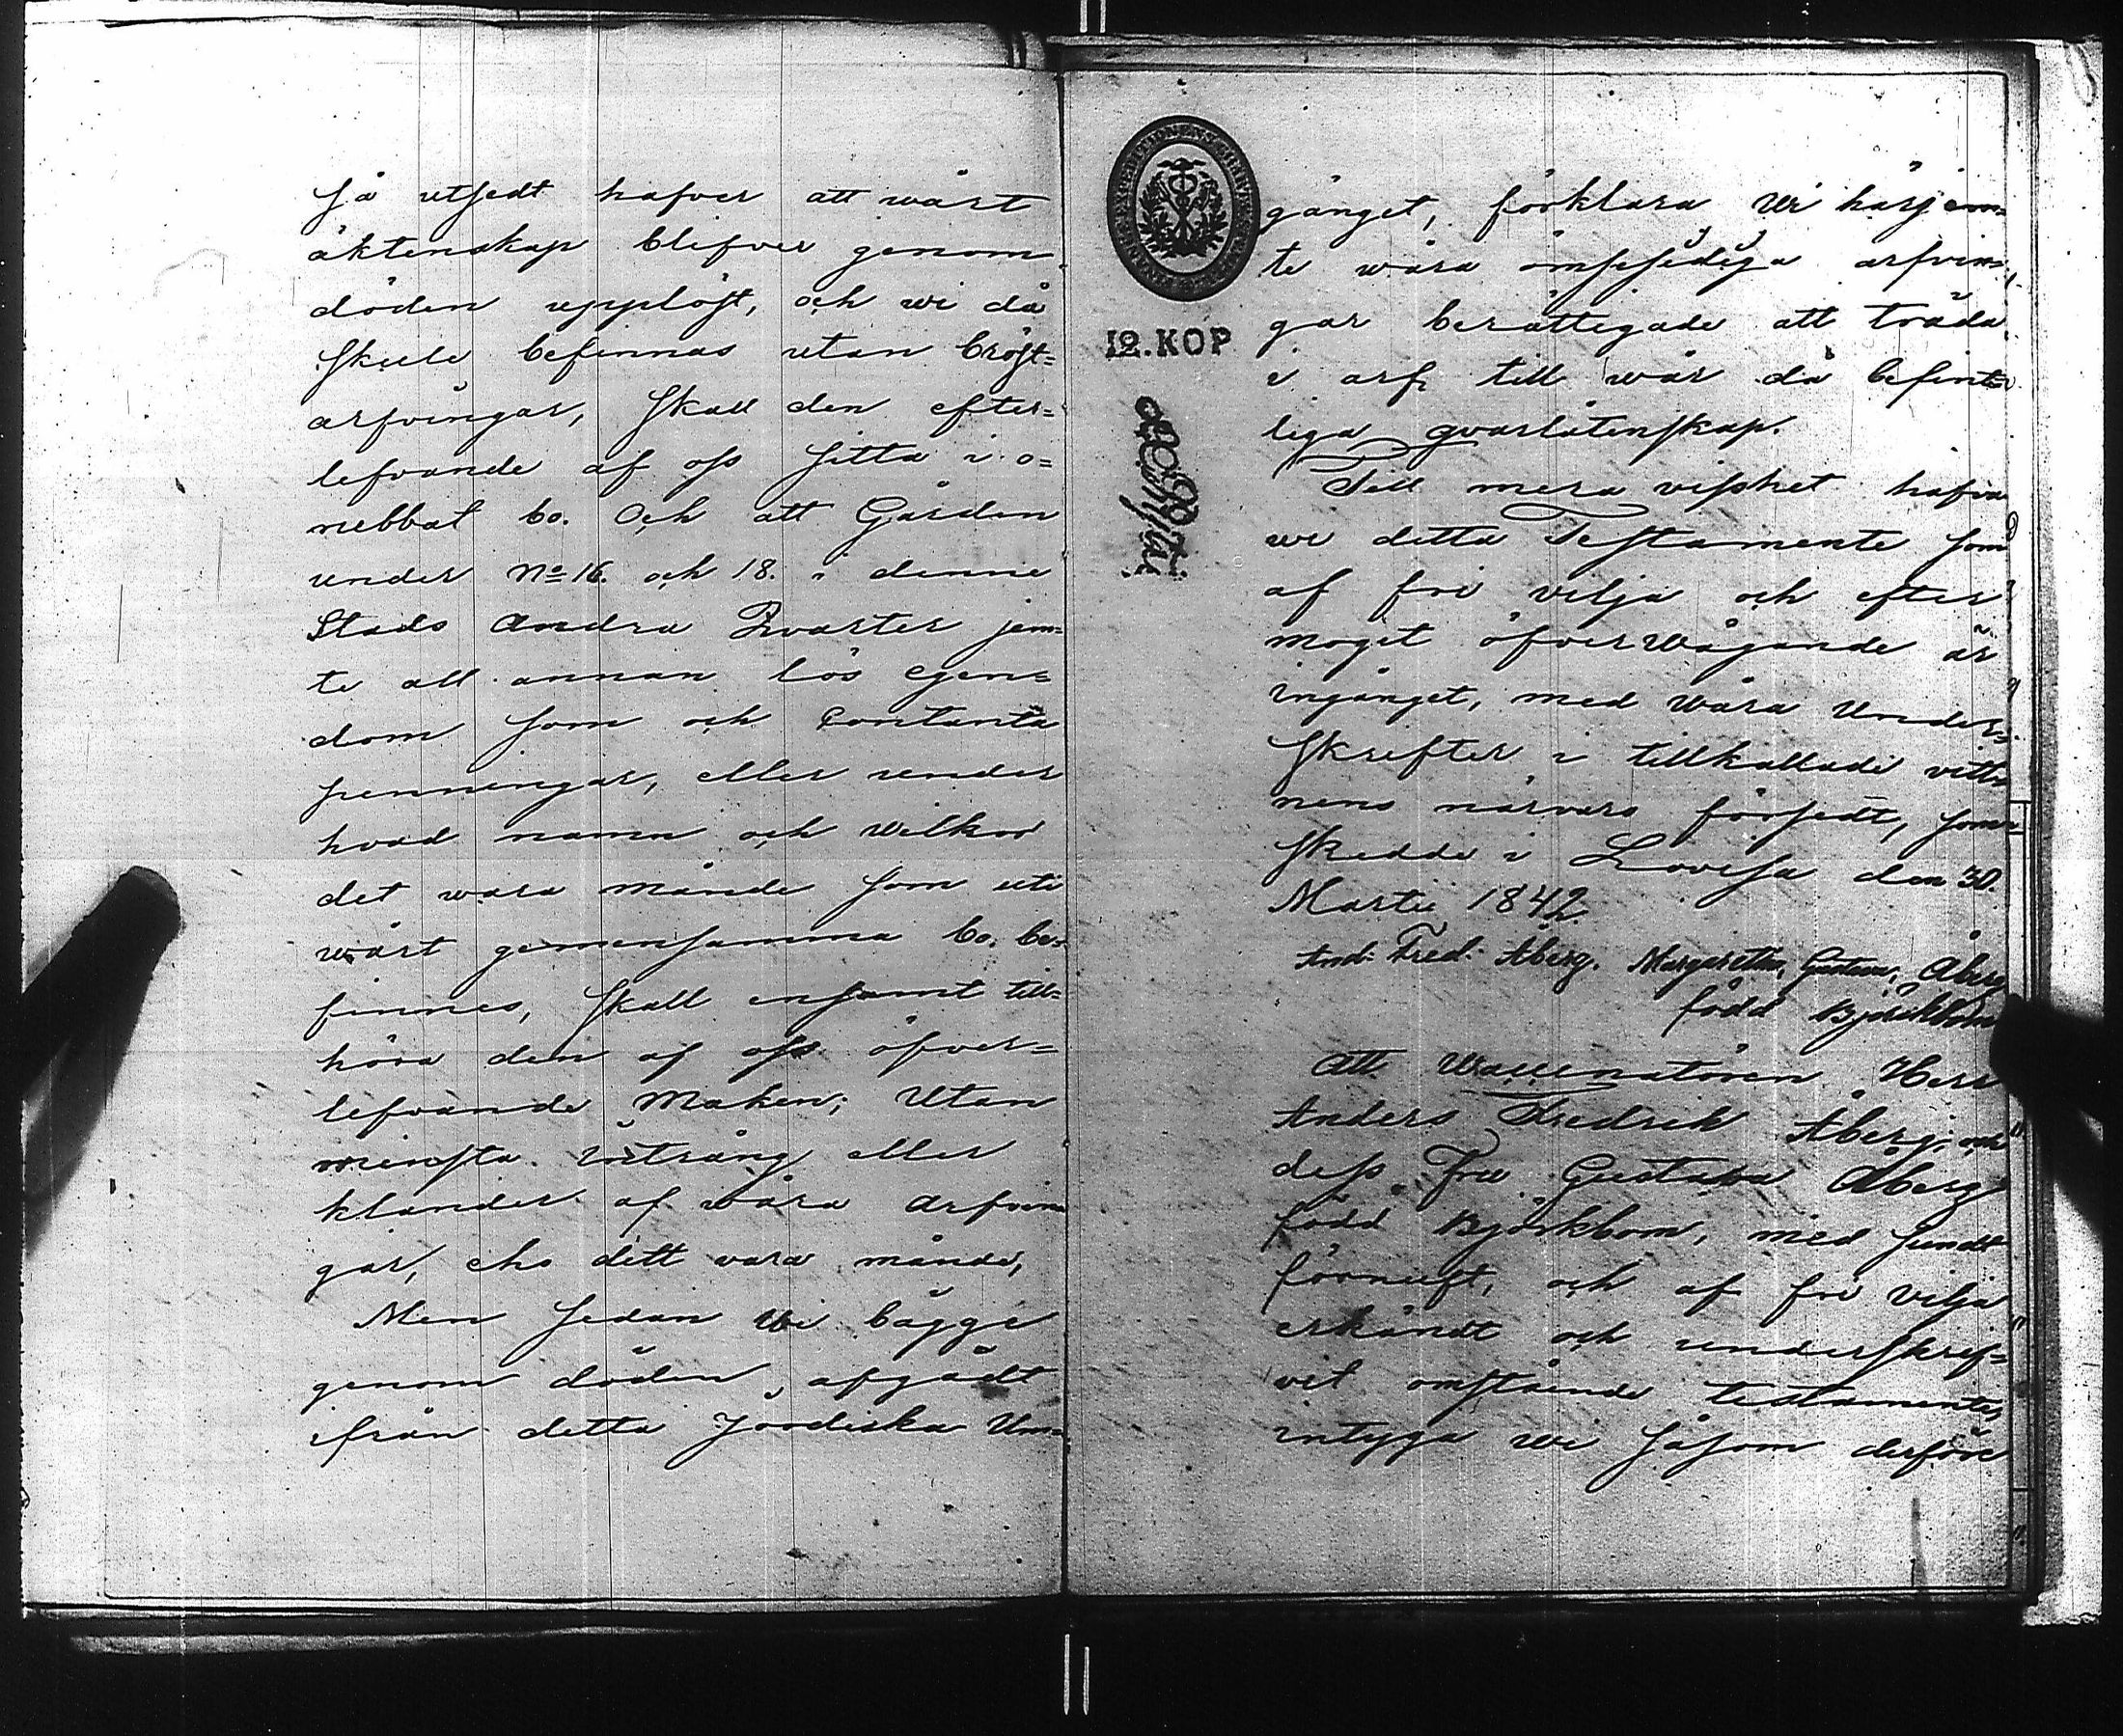 så utsedt hafver att wårt
äktenskap blifver genom
döden upplöst, och wi då
skulle befinnas utan bröst=
arfvingar, skall den efter=
lefvande af oss sitta i o=
nebbat bo. Och att Gården
under No 16. och 18. i denne
Stads Andra Qvarter jem=
te all annan lös egen=
dom som och Contanta
penningar, eller under
hvad namn och wilkor
det wara månde som uti
wårt gemensamma bo be=
finnes, skall ensamt till=
höra den af oss öfver=
lefvande Maken; Utan
minsta intrång eller
klander af wåra Arfvin=
gar, eho dett vara månde,
Men sedan Wi bägge
genom döden, afgådt
ifrån detta Jordiska Um=
12. KOP
gänget, förklara Wi härjem=
te wåra ömsesidiga arfvin=
gar berättigade att träda
i arf till wår då befint=
liga qvarlåtenskap.
Till mera visshet hafva
wi detta Testamente som
af fri vilja och efter
moget öfverwägande är
ingånget, med Wåra Under=
skrifter i tillkallade vitt=
nens närvaro försedt, som
skedde i Lovisa den 30.
Martii 1842
And: Fred: Åberg. Margaretha, Gustava, Åberg
född Björkbom
Att Waccinatören Herr
Anders Fredrik Åberg, och
dess Fru Gustava Åberg
född Björkbom, med sundt
förnuft, och af fri vilja
erkändt och underskrif=
vit omstående testamente,
intyga wi såsom derföre